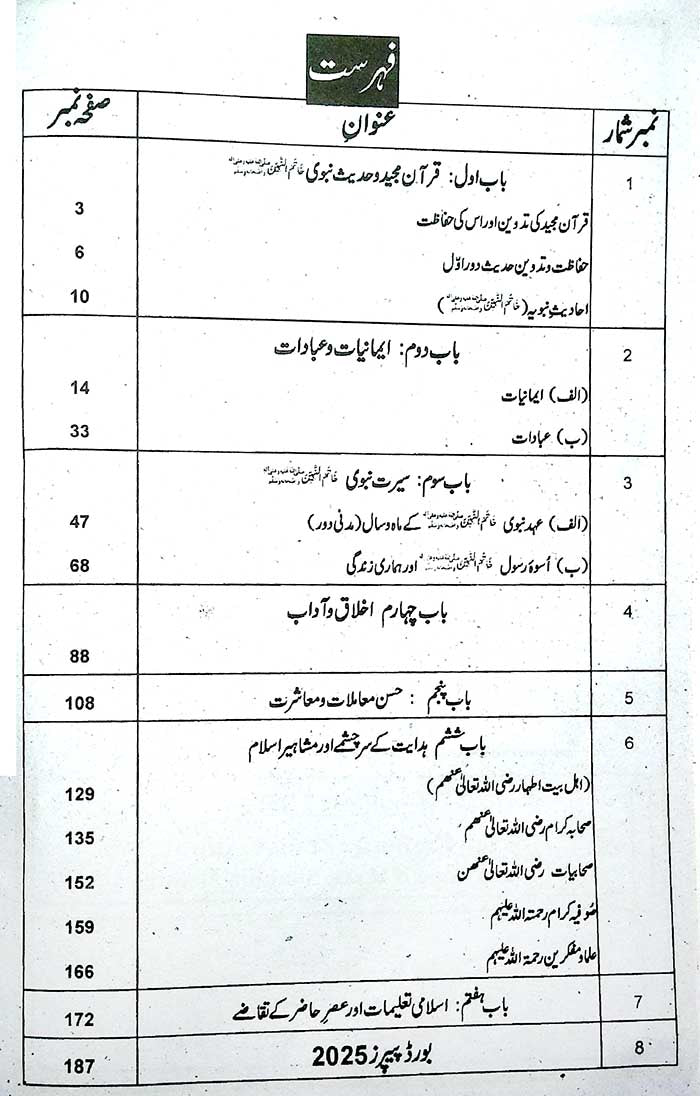 فہرست
نمبر شمار عنوان صفحہ نمبر
1 باب اول: قرآن مجید و حدیث نبوی خَاتَمُ النَّبِیّٖنَ صلی اللہ علیہ وعلی آلہ واصحابہ وسلم
قرآن مجید کی تدوین اور اس کی حفاظت 3
حفاظت و تدوین حدیث دور اوّل 6
احادیثِ نبویہ (خَاتَمُ النَّبِیّٖنَ صلی اللہ علیہ وعلی آلہ واصحابہ وسلم) 10
2 باب دوم: ایمانیات و عبادات
(الف) ایمانیات 14
(ب) عبادات 33
3 باب سوم: سیرت نبوی خَاتَمُ النَّبِیّٖنَ صلی اللہ علیہ وعلی آلہ واصحابہ وسلم
(الف) عہد نبوی خَاتَمُ النَّبِیّٖنَ صلی اللہ علیہ وعلی آلہ واصحابہ وسلم کے ماہ و سال (مدنی دور) 47
(ب) اُسوۂ رسول خَاتَمُ النَّبِیّٖنَ صلی اللہ علیہ وعلی آلہ واصحابہ وسلم اور ہماری زندگی 68
4 باب چہارم اخلاق و آداب
88
5 باب پنجم : حسن معاملات و معاشرت 108
6 باب ششم ہدایت کے سرچشمے اور مشاہیر اسلام
(اہل بیت اطہار رضی اللہ تعالیٰ عنھم) 129
صحابہ کرام رضی اللہ تعالیٰ عنھم 135
صحابیات رضی اللہ تعالیٰ عنھن 152
صُوفیہ کرام رحمتہ اللہ علیہم 159
علماو مفکرین رحمۃ اللہ علیہم 166
7 باب ہفتم: اسلامی تعلیمات اور عصرِ حاضر کے تقاضے 172
8 بورڈ پیپرز 2025 187